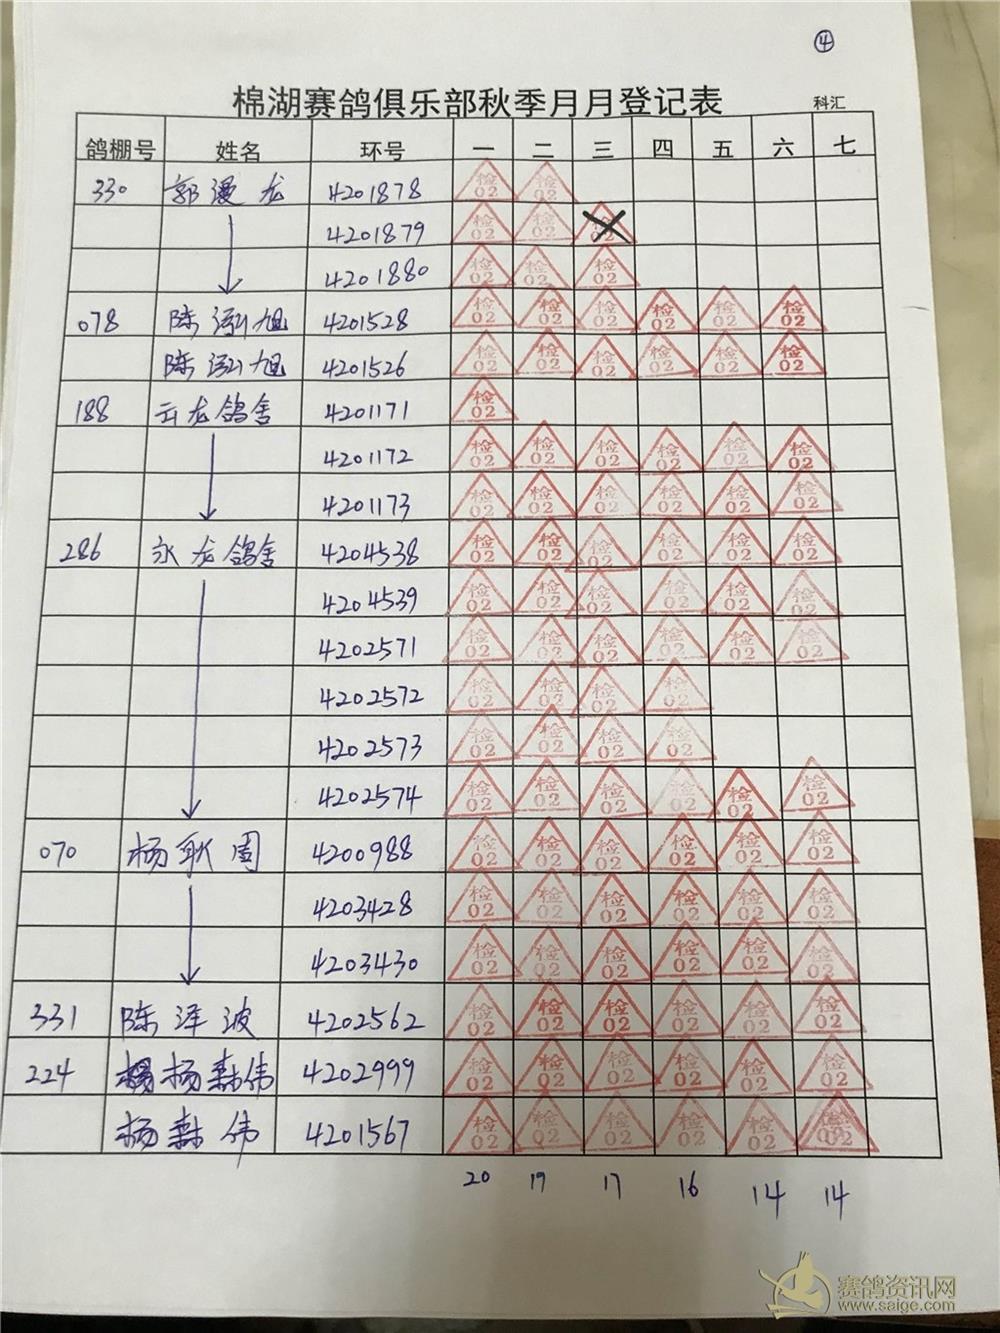 ④
棉湖赛鸽俱乐部秋季月月登记表 科汇
鸽棚号 姓名 环号 一 二 三 四 五 六 七
330 郭漫龙 4201878 检02 检02
4201879 检02 检02 检02
4201880 检02 检02 检02
078 陈泓旭 4201528 检02 检02 检02 检02 检02 检02
陈泓旭 4201526 检02 检02 检02 检02 检02 检02
188 云龙鸽舍 4201171 检02
4201172 检02 检02 检02 检02 检02 检02
4201173 检02 检02 检02 检02 检02 检02
286 永龙鸽舍 4204538 检02 检02 检02 检02 检02 检02
4204539 检02 检02 检02 检02 检02 检02
4202571 检02 检02 检02 检02 检02 检02
4202572 检02 检02 检02 检02
4202573 检02 检02 检02 检02
4202574 检02 检02 检02 检02 检02 检02
070 杨耿周 4200988 检02 检02 检02 检02 检02 检02
4203428 检02 检02 检02 检02 检02 检02
4203430 检02 检02 检02 检02 检02 检02
331 陈泽波 4202562 检02 检02 检02 检02 检02 检02
224 杨森伟 4202999 检02 检02 检02 检02 检02 检02
杨森伟 4201567 检02 检02 检02 检02 检02 检02
20 19 17 16 14 14
赛鸽资讯网
www.saige.com